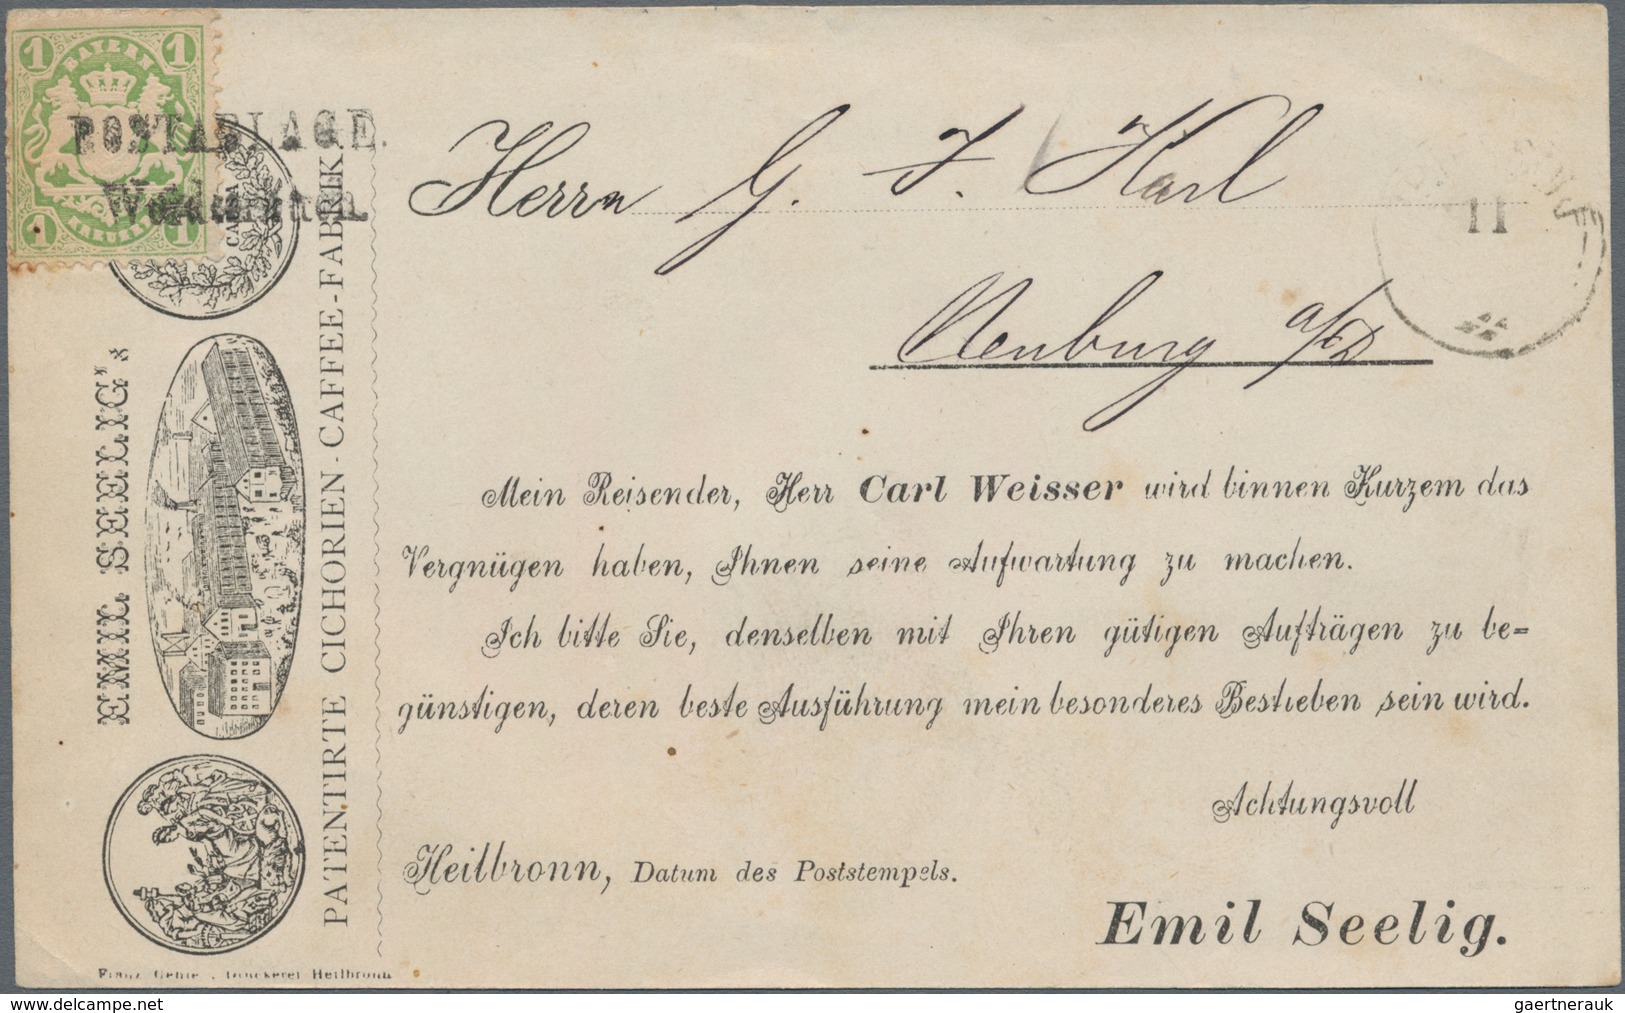 1 BAYERN 1
POSTABLAGE.
1 1
CAFFA
Herrn G. J. Karl
11
Neuburg a/D
EMIL SEELIG's
PATENTIRTE CICHORIEN-CAFFEE-FABRIK
Mein Reisender, Herr Carl Weisser wird binnen Kurzem das
Vergnügen haben, Ihnen seine Aufwartung zu machen.
Ich bitte Sie, denselben mit Ihren gütigen Aufträgen zu be=
günstigen, deren beste Ausführung mein besonderes Bestreben sein wird.
Achtungsvoll
Heilbronn, Datum des Poststempels.
Emil Seelig.
Druckerei Heilbronn
www.delcampe.net
gaertnerauk